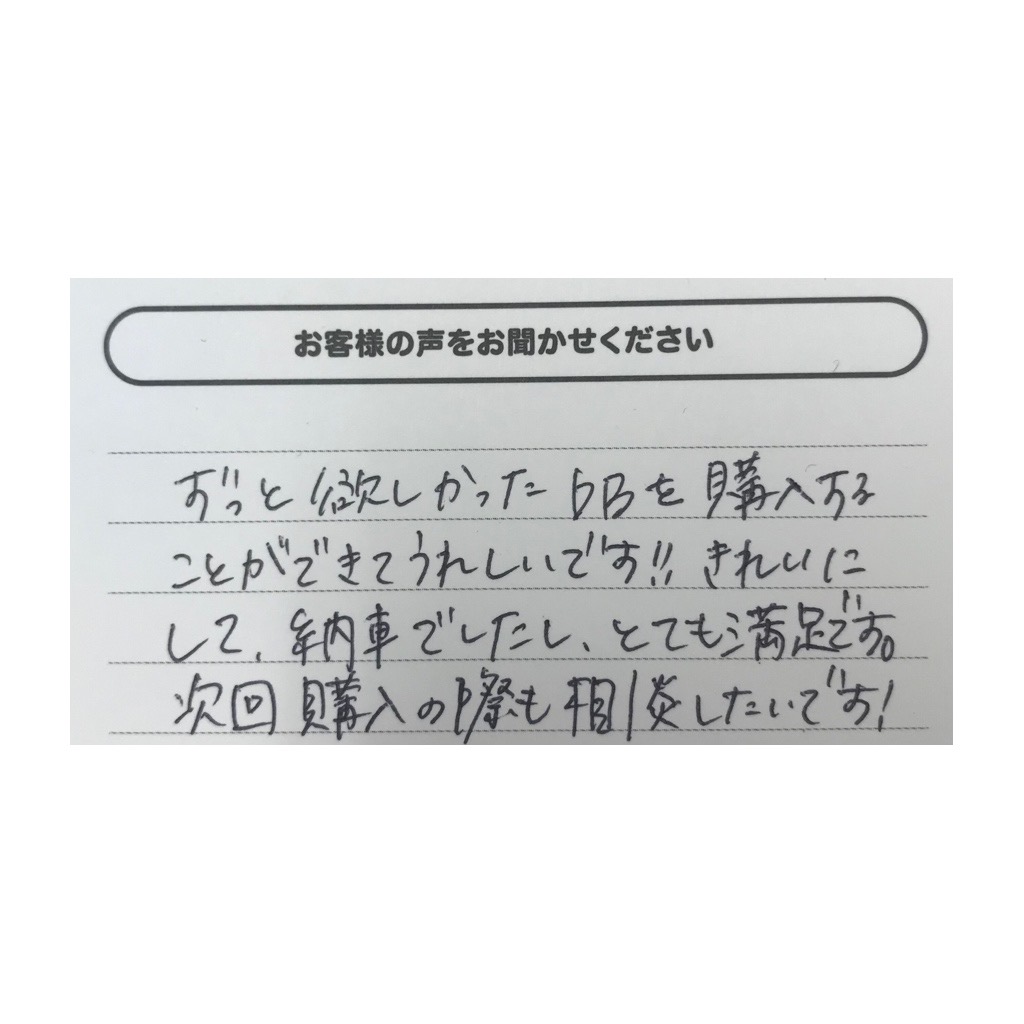 お客様の声をお聞かせください
ずっと欲しかったbBを購入する
ことができてうれしいです!! きれいに
して、納車でしたし、とても満足です。
次回購入の際も相談したいです!